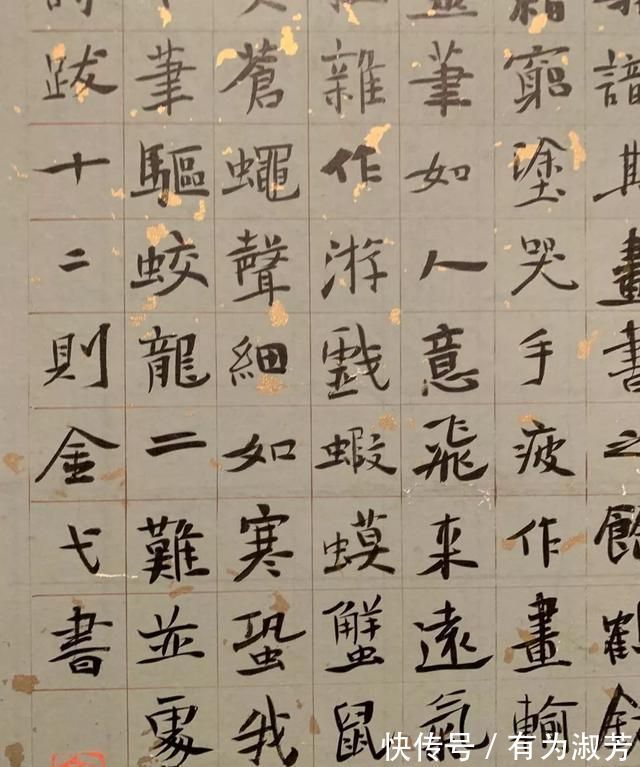 畫書之餘鶴
籍窮塗哭手疲作畫輸
筆如人意飛來遠氣
雜作游戲蝦蟆蟹鼠
蒼蠅聲細如寒蛩我
筆驅蛟龍二難並處
跋十二則金弋書
快传号 / 有为淑芳